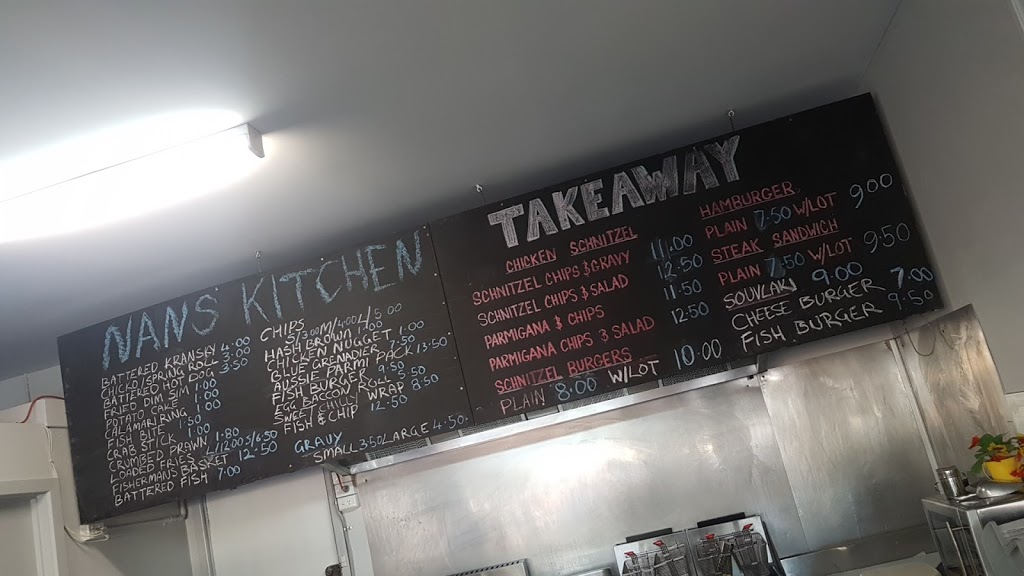 NANS KITCHEN
BATTERED KRANSKY 4.00
BATTER HOT DOG 3.50
FRIED DIM SIM 1.00
POTATO CAKE 1.00
CALAMARI RING 1.50
FISH BITE 1.00
CRAB STICK 1.00
CRUMBED PRAWN 1.80
LOADED FRIES
FISHERMANS BASKET 12.50
BATTERED FISH 7.00
CHIPS
HASH BROWN 1.00
CHICKEN NUGGET 1.00
FISH BURGER 9.50
SWEET CHILLI WRAP 8.50
FISH & CHIP 12.50
GRAVY
SMALL 3.50 LARGE 4.50
TAKEAWAY
CHICKEN SCHNITZEL
SCHNITZEL CHIPS & GRAVY 11.00
SCHNITZEL CHIPS & SALAD 12.50
PARMIGANA & CHIPS 11.50
PARMIGANA CHIPS & SALAD 12.50
SCHNITZEL BURGERS
PLAIN 8.00 W/LOT 10.00
HAMBURGER
PLAIN 7.50 W/LOT 9.00
STEAK SANDWICH
PLAIN 7.50 W/LOT 9.50
SOUVLAKI 9.00
CHEESE BURGER 7.00
FISH BURGER 9.50